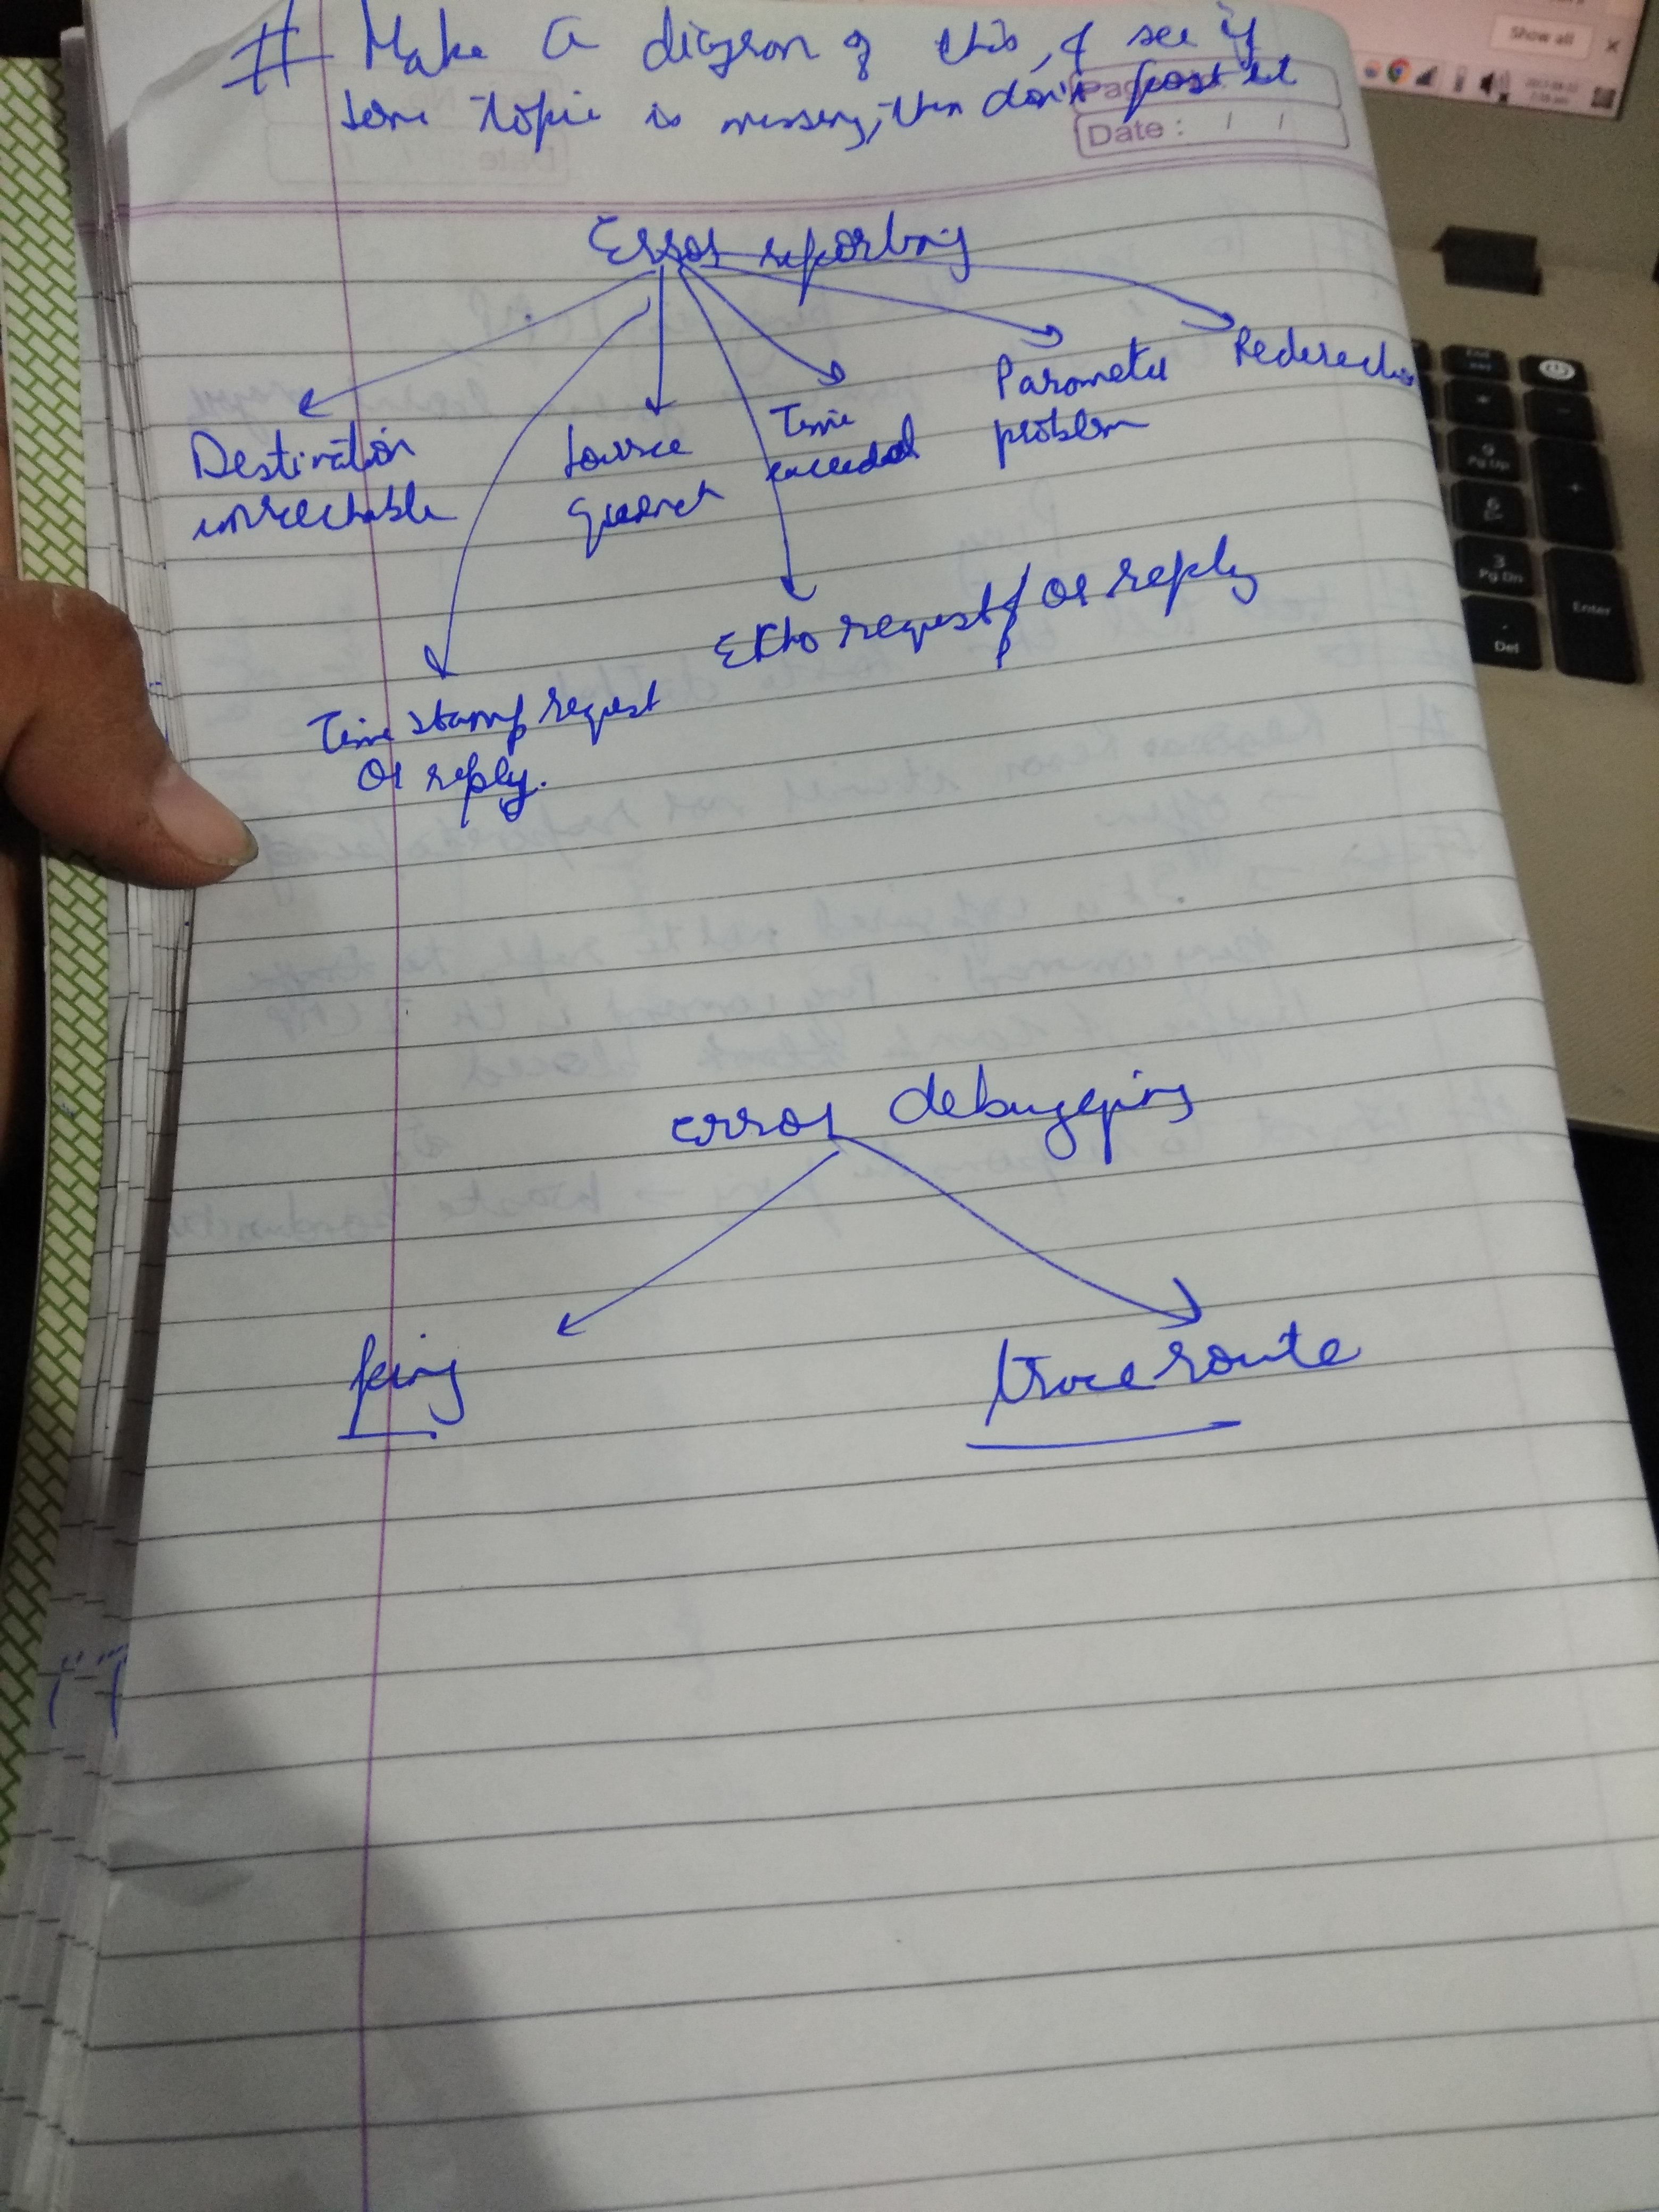 # Make a diagram of this, & see if
some topic is missing, then don't post it
Page No.
Date : / /
Error reporting
Destination
unreachable
Source
quench
Time
exceeded
Parameter
problem
Redirection
Echo request / or reply
Time stamp request
or reply.
error debugging
ping
trace route
Show all
End
9
Pg Up
6
3
Pg Dn
.
Del
Enter
+
-